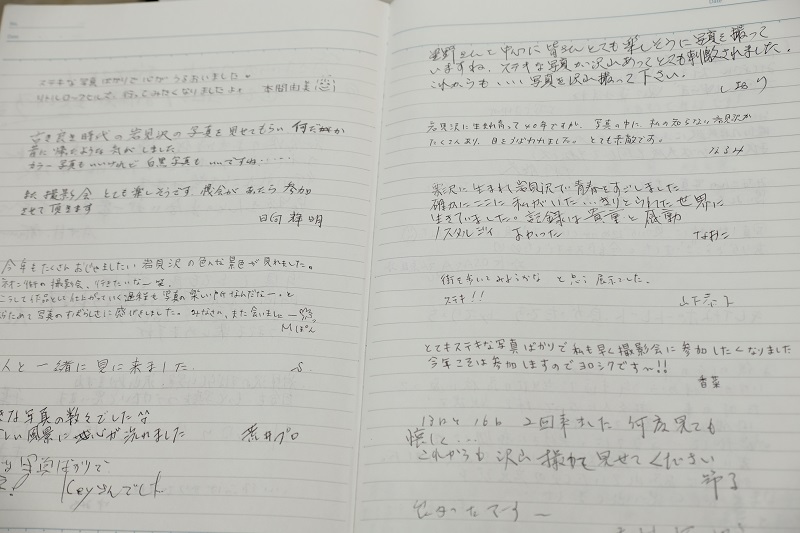 ステキな写真ばかりで心がうるおいました。
行ってみたくなりましたよ。 本間由美
古き良き時代の岩見沢の写真を見せてもらい何だか
昔に帰ったような気がしました。
カラー写真もいいけれど白黒写真もいいですね……
また撮影会とても楽しそうです。機会があったら参加
させて頂きます
日向輝明
今年もたくさんおじゃましたい岩見沢の色んな景色が見れました。
ネオン街の撮影会、行きたいなー
こうして作品として仕上がっていく過程も写真の楽しい所なんだなー。と
ためて写真のすばらしさに感じました。みなさん、また会いましょー
Mぱん
人と一緒に見に来ました S
な写真の数々でした
しい風景に心が洗れました 荒井プロ
な写真ばかりで
Keyさんでした
星野さんを中心に皆さんとても楽しそうに写真を撮って
いますね。ステキな写真が沢山あってとても刺激されました。
これからも・・・いい写真を沢山撮って下さい。
しおり
岩見沢に生まれ育って40年ですが、写真の中に、私の知らない岩見沢が
たくさんあり、目をうばわれました。とても素敵です。
なるみ
美沢に生まれ岩見沢で青春をすごしました
確かにここに私がいた…きりとられてた世界に
生きていました。記録は貴重と感動
ノスタルジイ よかった なおこ
街を歩いてみようかな と思う展示でした。
ステキ!! 山下
とてもステキな写真ばかりで私も早く撮影会に参加したくなりました
今年こそは参加しますのでヨロシクです〜!!
香菜
13日と16日 2回来ました 何度見ても
懐しく…
これからも沢山撮って見せてください
節子